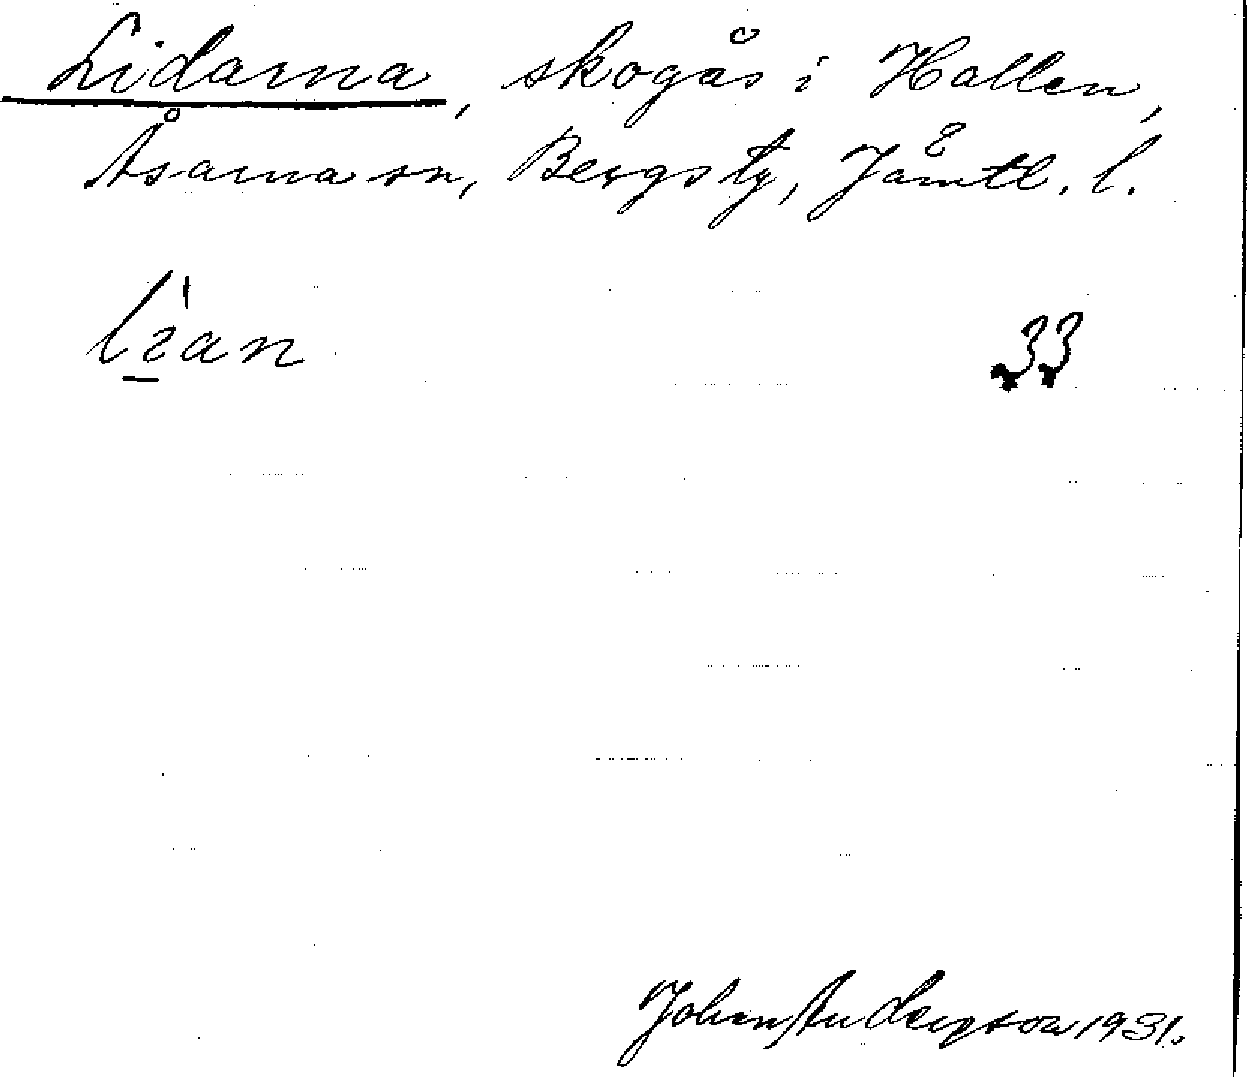 Lidarna, skogås i Hallen,
Åsarna sn, Bergs tg, Jämtl. l.
33
Johan Anderson 1931.